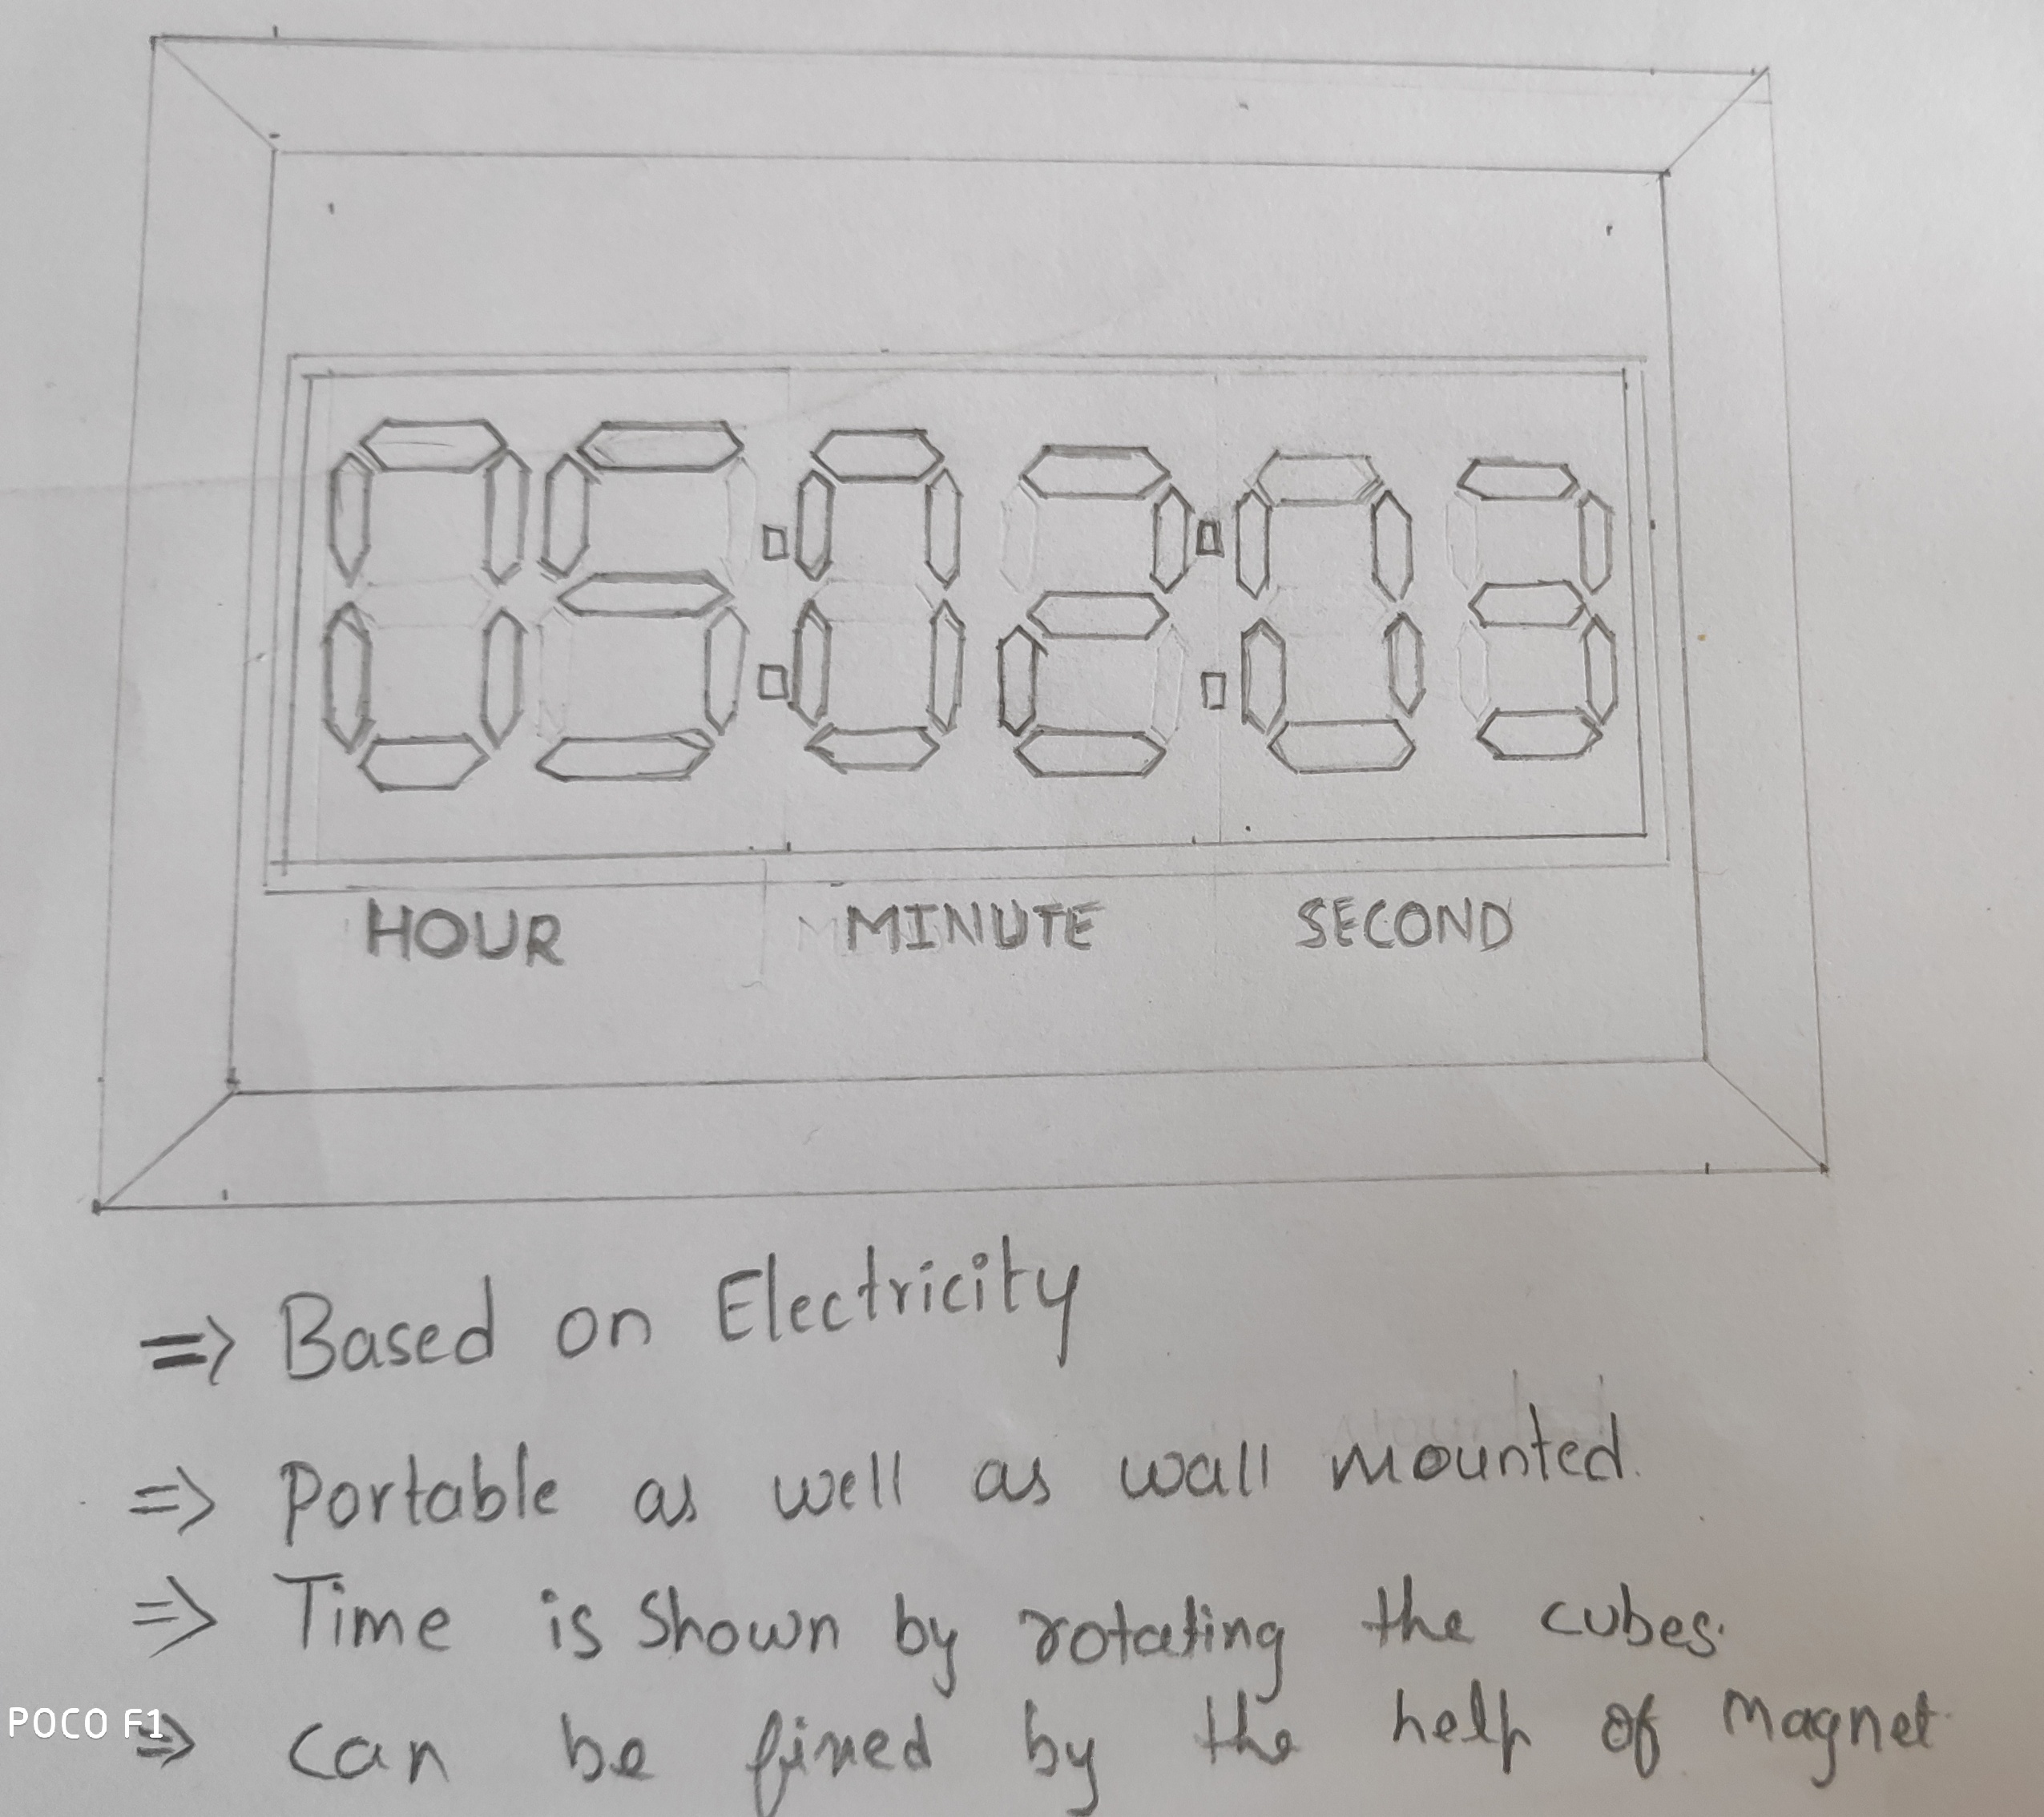 05:02:03
HOUR MINUTE SECOND
=> Based on Electricity
=> Portable as well as wall mounted.
=> Time is shown by rotating the cubes.
POCO F1
=> can be fixed by the help of Magnet.